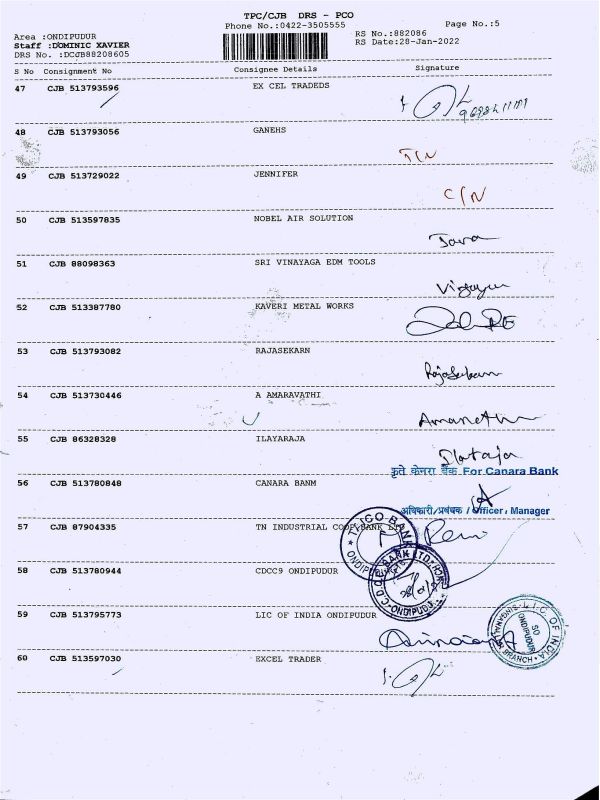 TPC/CJB DRS - PCO
Phone No.:0422-3505555
Page No.:5
Area :ONDIPUDUR
RS No.:882086
Staff :DOMINIC XAVIER
RS Date:28-Jan-2022
DRS No. :DCJB88208605
S No Consignment No Consignee Details Signature
47 CJB 513793596 EX CEL TRADEDS
48 CJB 513793056 GANEHS
49 CJB 513729022 JENNIFER
C/N
50 CJB 513597835 NOBEL AIR SOLUTION
51 CJB 88098363 SRI VINAYAGA EDM TOOLS
52 CJB 513387780 KAVERI METAL WORKS
53 CJB 513793082 RAJASEKARN
54 CJB 513730446 A AMARAVATHI
55 CJB 86328328 ILAYARAJA
कृते केनरा बैंक For Canara Bank
56 CJB 513780848 CANARA BANM
अधिकारी/प्रबंधक / Officer / Manager
57 CJB 87904335 TN INDUSTRIAL COOP BANK LTD
58 CJB 513780944 CDCC9 ONDIPUDUR
59 CJB 513795773 LIC OF INDIA ONDIPUDUR
L.I.C. OF INDIA
SO
ONDIPUDUR
BRANCH
60 CJB 513597030 EXCEL TRADER